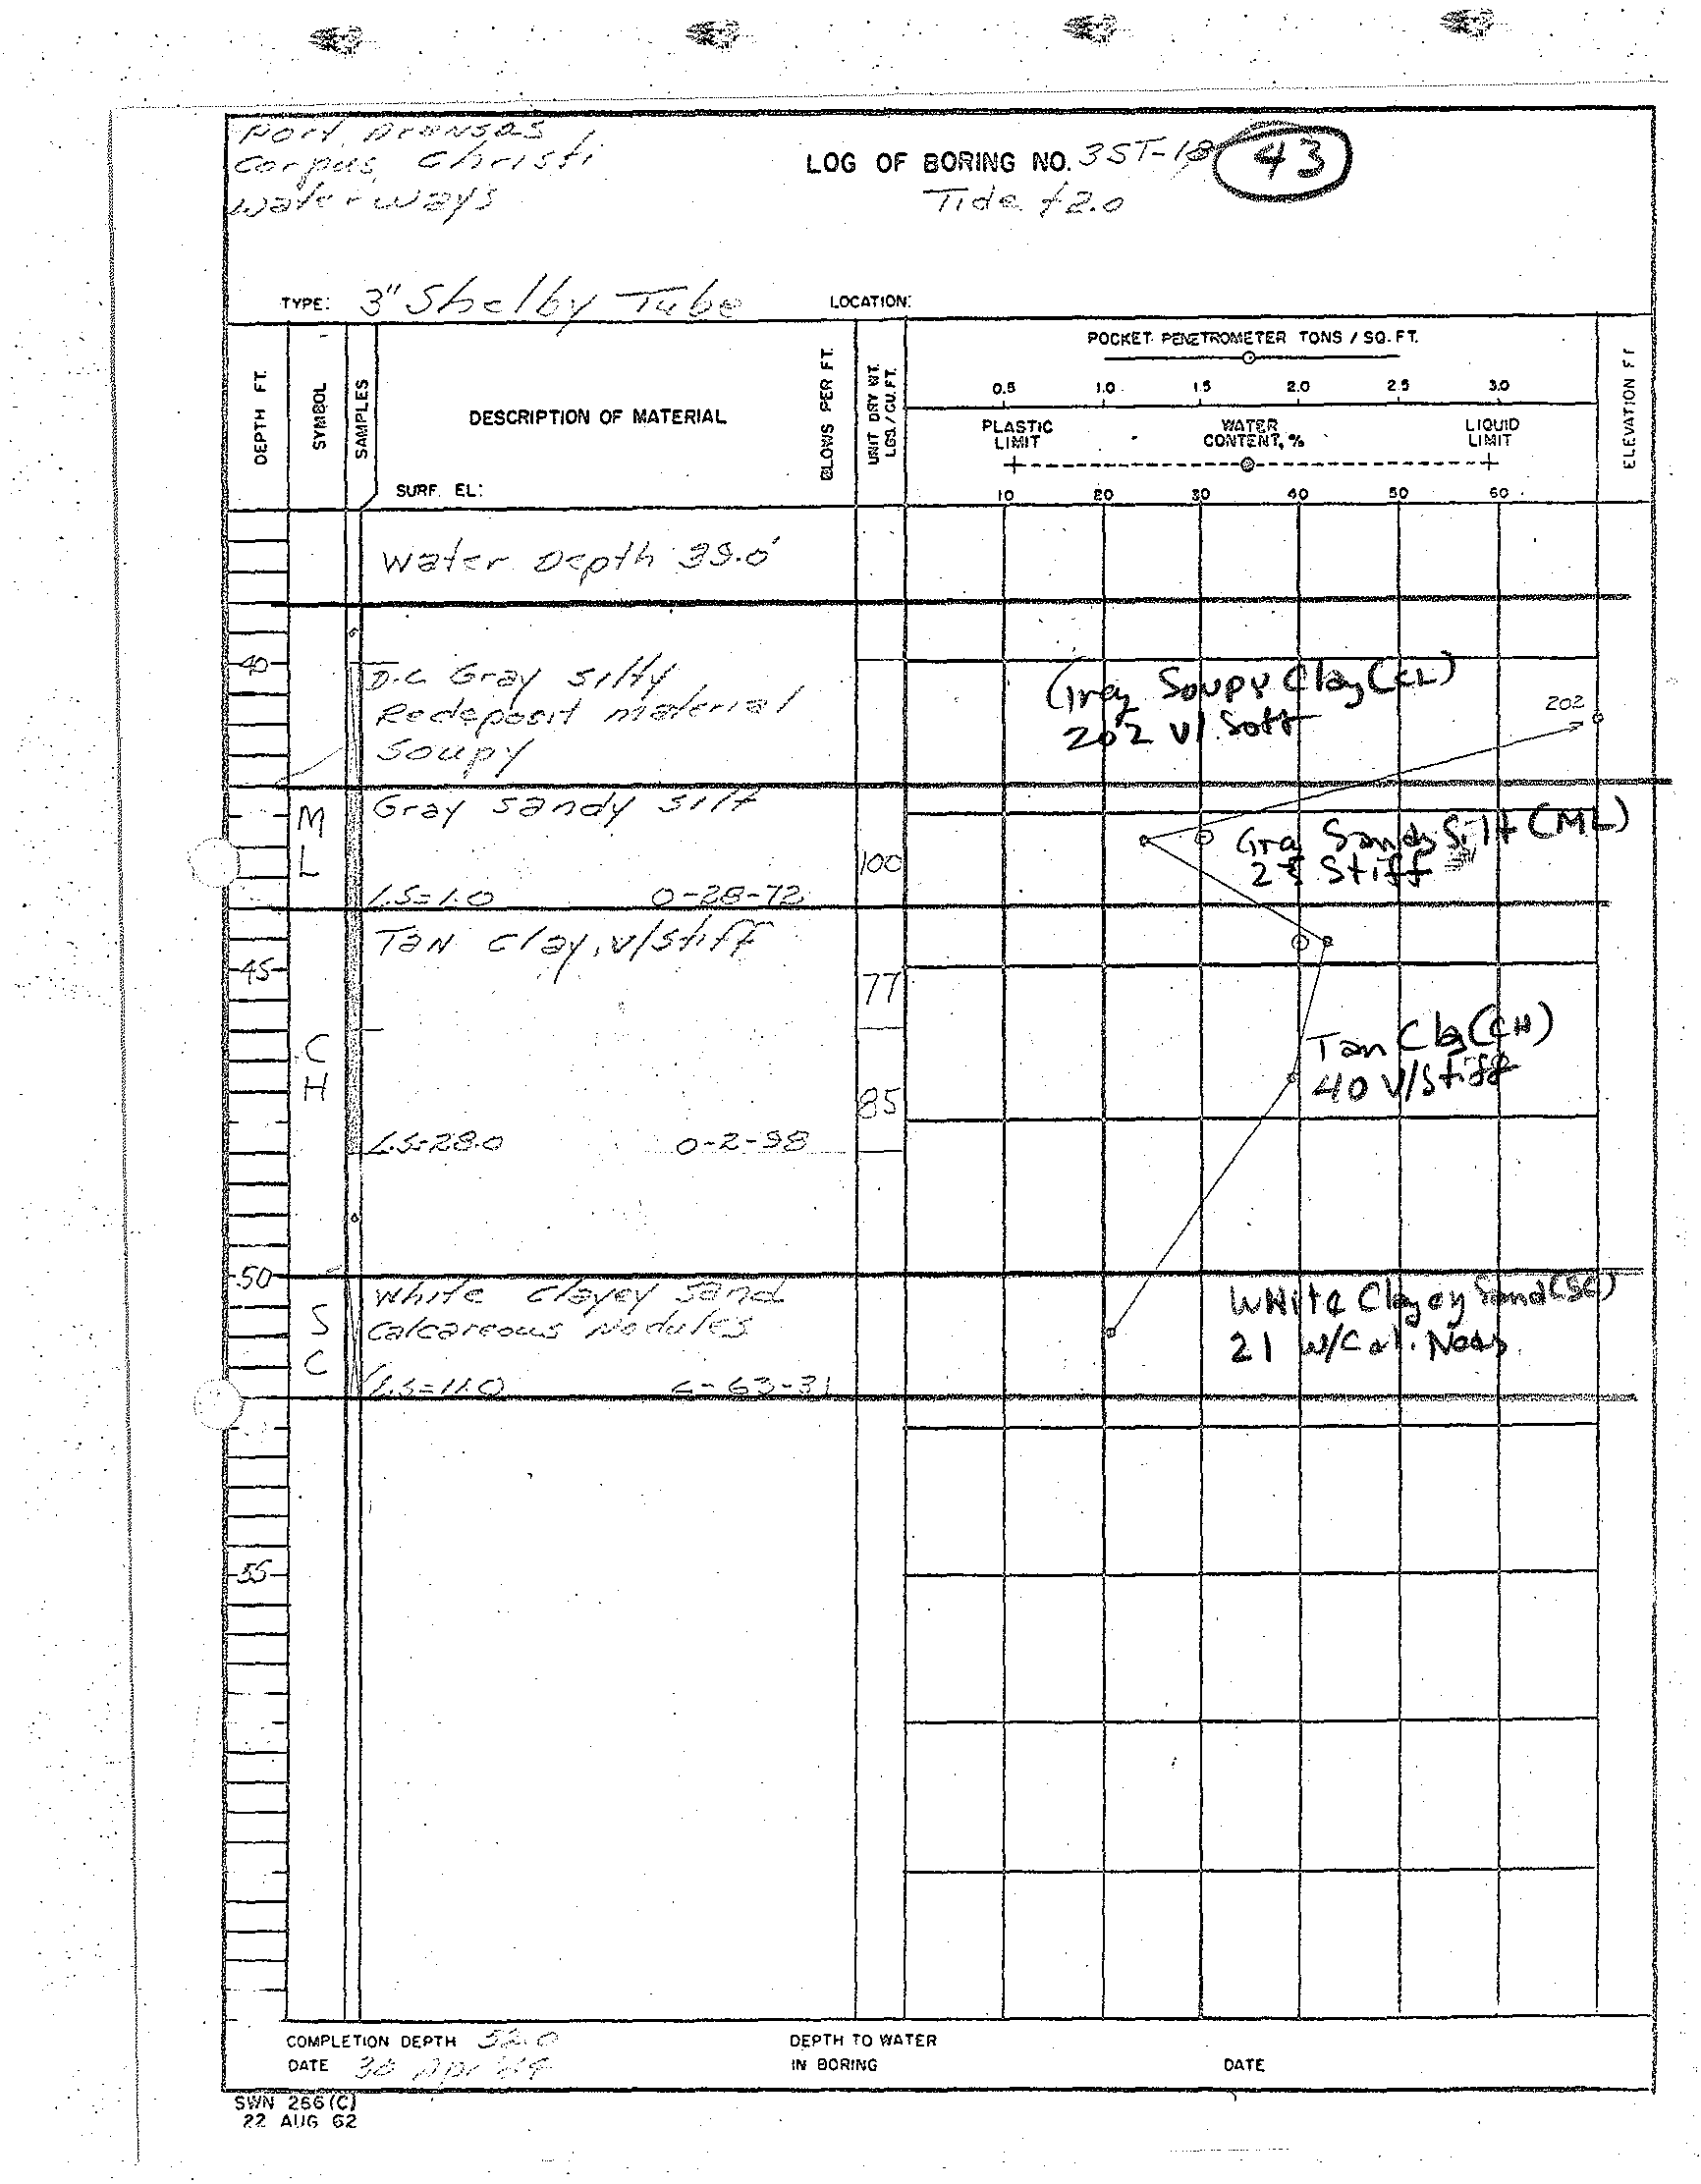 Port Aransas
Corpus Christi
Waterways
LOG OF BORING NO. 3ST-18 43
Tide +2.0
TYPE: 3" Shelby Tube LOCATION:
DEPTH FT.
SYMBOL
SAMPLES
DESCRIPTION OF MATERIAL
SURF. EL:
BLOWS PER FT.
UNIT DRY WT.
LGS./CU.FT.
POCKET PENETROMETER TONS / SQ. FT.
0.5 1.0 1.5 2.0 2.5 3.0
PLASTIC LIMIT
WATER CONTENT, %
LIQUID LIMIT
10 20 30 40 50 60
ELEVATION FT
Water Depth 39.0'
40
D.C Gray silty
Redeposit material
Soupy
Gray Soupy Clay (CL)
202 V/ Soft
202
ML
Gray sandy silt
100
L.S=1.0 0-28-72
Gray Sandy Silt (ML)
Stiff
Tan clay, v/stiff
45
77
CH
85
L.S=28.0 0-2-98
Tan Clay (CH)
40 V/Stiff
50
SC
White clayey sand
Calcareous Nodules
L.S=11.0 6-63-31
White Clayey Sand (SC)
21 W/Cal. Nods.
55
COMPLETION DEPTH 52.0
DATE 30 Apr 64
DEPTH TO WATER
IN BORING
DATE
SWN 266 (C)
22 AUG 62